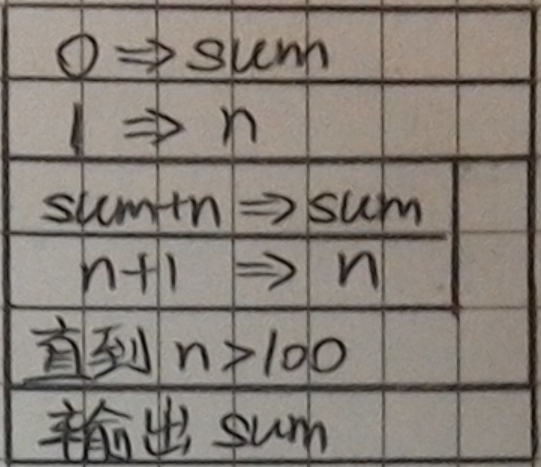 0 ⇒ sum
1 ⇒ n
sum+n ⇒ sum
n+1 ⇒ n
直到 n>100
输出 sum